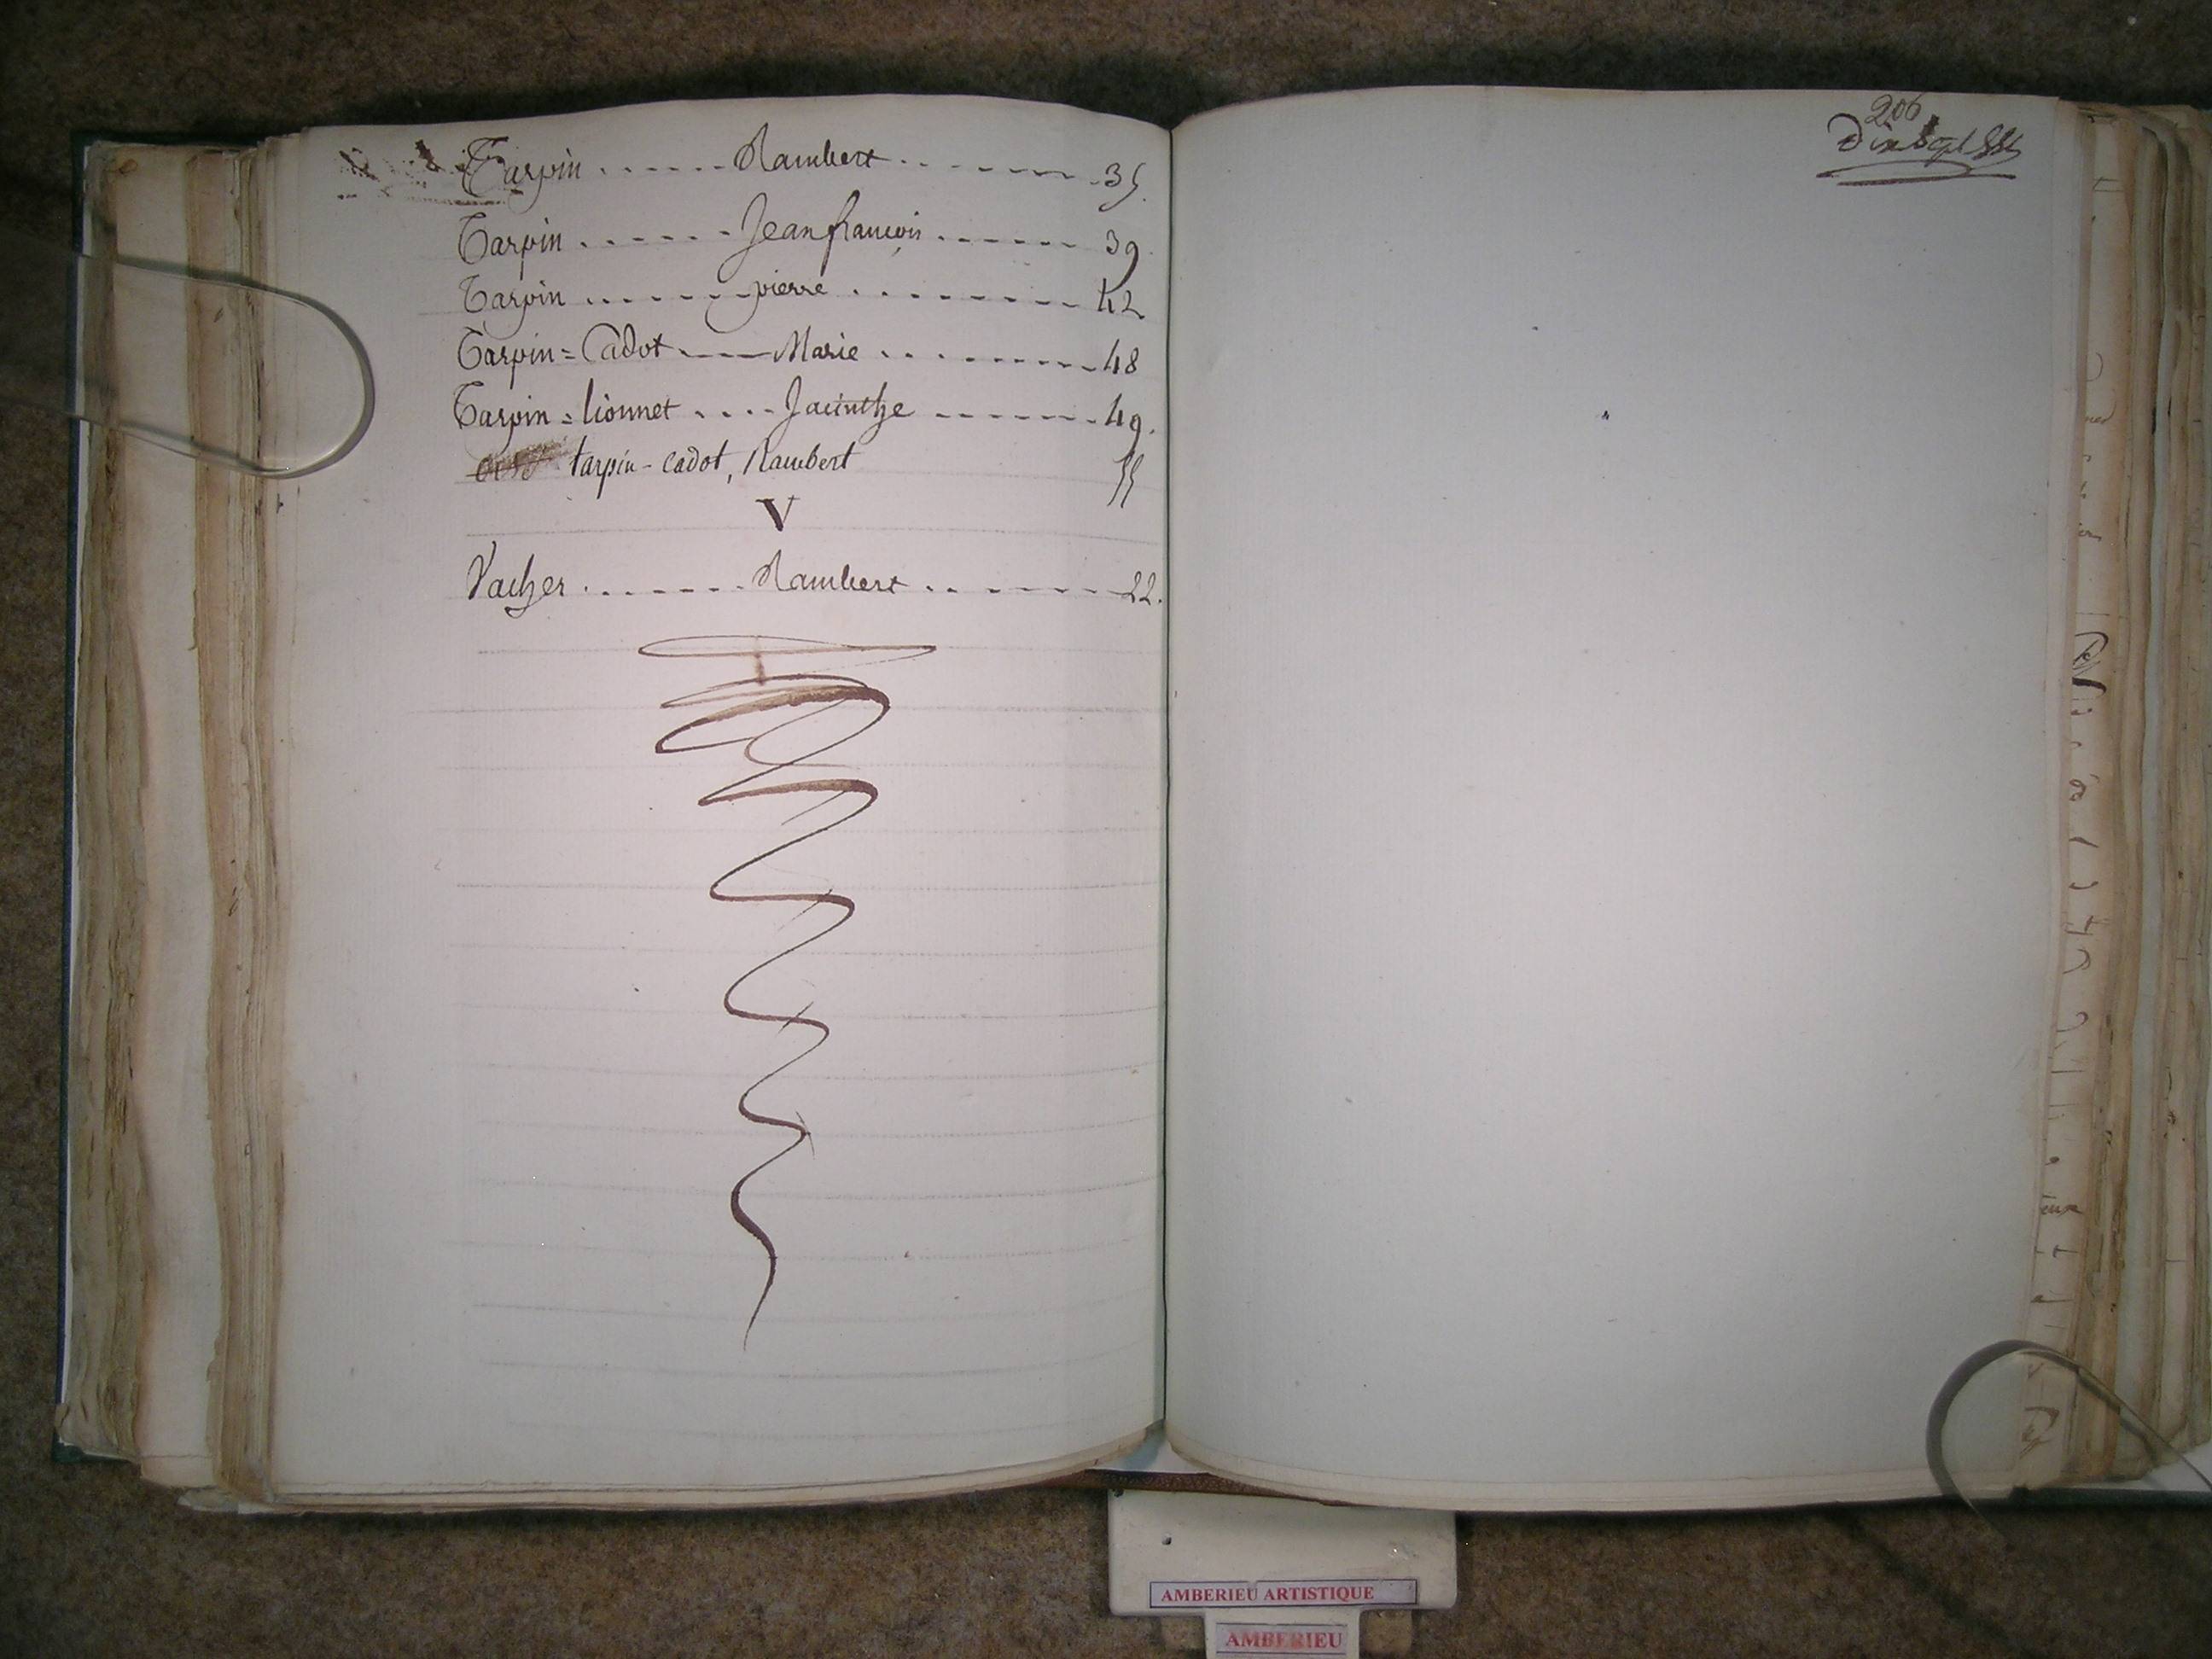 Tarpin ...... Rambert ........ 35.
Tarpin ...... Jean françois ...... 39.
Tarpin ...... pierre ........ 42.
Tarpin = Cadot ---- Marie ........ 48
Tarpin = lionnet .... Jacinthe ------ 49.
tarpin - cadot, Rambert 55
V
Vacher ....... Rambert ........ 22.
206
Dixsept
AMBERIEU ARTISTIQUE
AMBERIEU